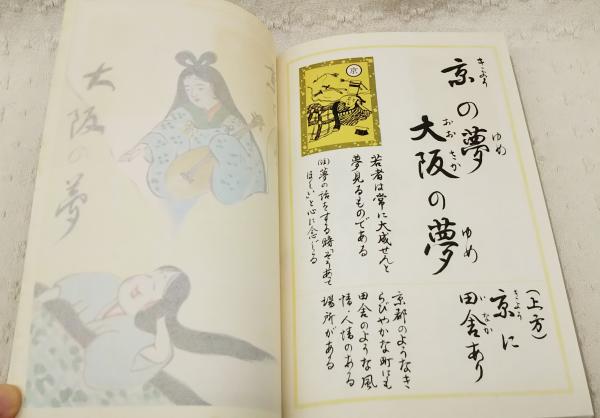 京の夢
きょう
ゆめ
大阪の夢
おおさか
ゆめ
京
若者は常に大成せんと
夢見るものである
(注)夢の話をする時、そうあて
ほしいと心に念じる
(上方)
京に
きょう
田舎あり
いなか
京都のようなき
らびやかな町にも
田舎のような風
情・人情のある
場所がある
大阪の夢